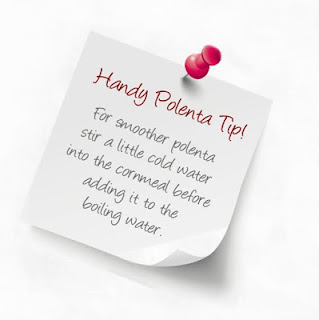 Handy Polenta Tip!
For smoother polenta
stir a little cold water
into the cornmeal before
adding it to the
boiling water.